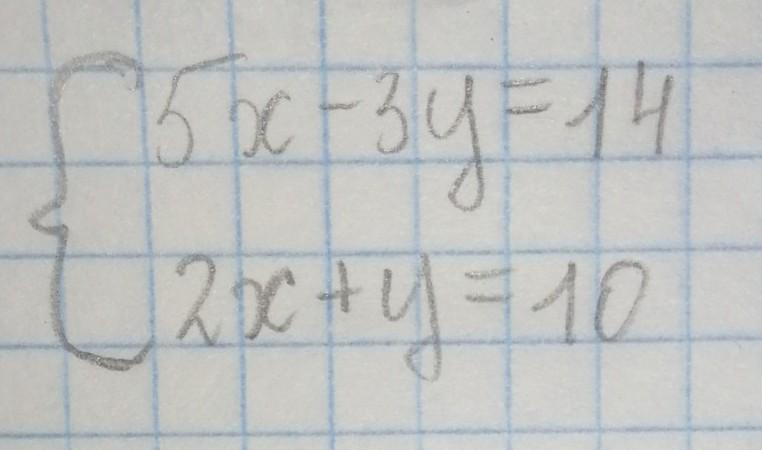 5x-3y=14
2x+y=10